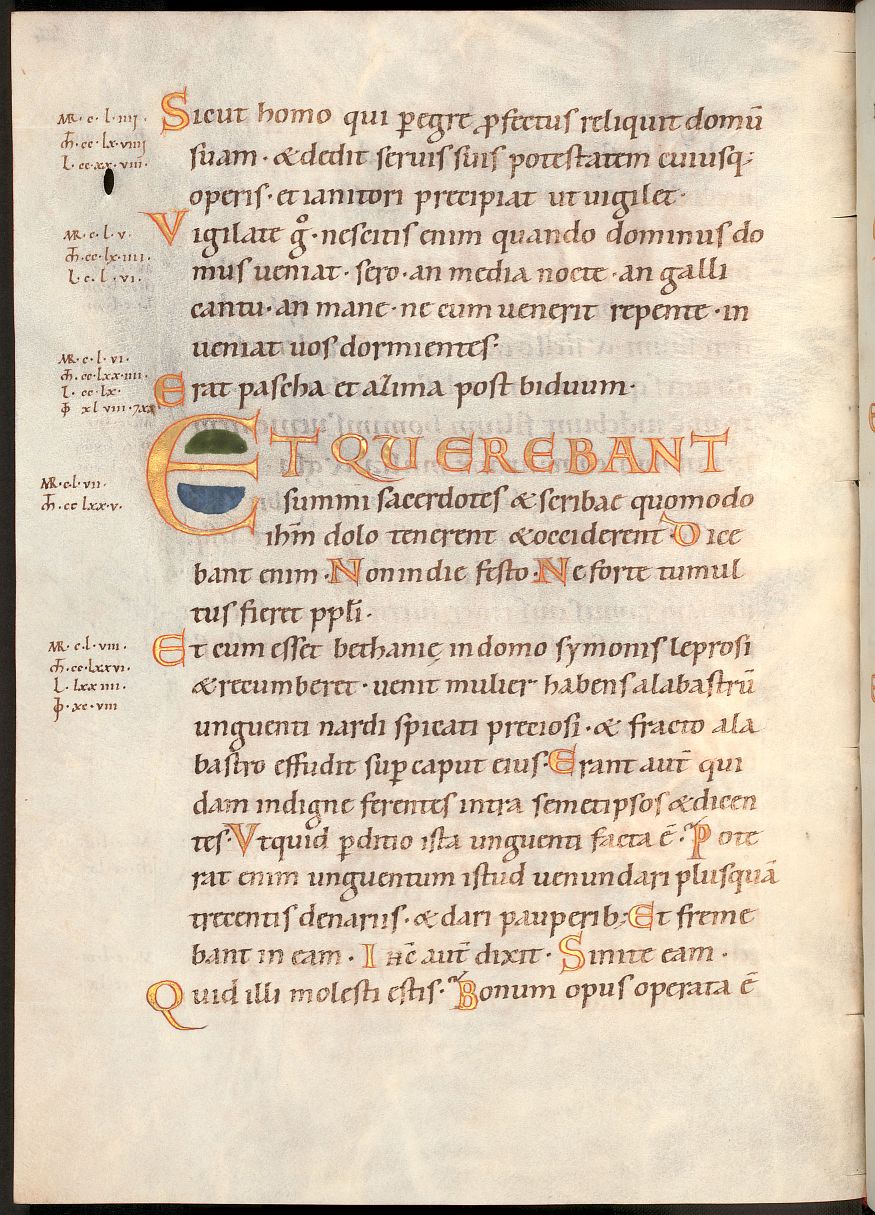 MR · c · l · IIII ·
Sicut homo qui p̲egre p̲fectus reliquit domū
m̄t · cc · lx · viiij
suam · & dedit seruis suis potestatem cuiusq;
l · cc · xx · viii ·
operis · et ianitori precipiat ut uigilet ·
MR · c · l · v ·
Vigilate g̊ · nescitis enim quando dominus do
m̄t · cc · lx · iiii ·
mus ueniat · sero · an media nocte · an galli
l · c · l · vi ·
cantu · an mane · ne cum uenerit repente · in
ueniat uos dormientes ·
MR · c · l · vi ·
m̄t · cc · lxx · iiii ·
l · cc · lx ·
Erat pascha et azima post biduum ·
xl viii · 7xx
ET QUEREBANT
MR · c · l · vii ·
summi sacerdotes & scribae quomodo
m̄t · cc lxx · v ·
ih̄m dolo tenerent & occiderent · Dice
bant enim · Non in die festo · Ne forte tumul
tus fieret ppłi ·
MR · c · l · viii ·
Et cum esset bethanię in domo symonis leprosi
m̄t · cc · lxxvi ·
l · lxx iiii ·
& recumberet · uenit mulier habens alabastrū
xc · viii
unguenti nardi spicati preciosi · & fracto ala
bastro effudit sup̲ caput eius · Erant aut̄ qui
dam indigne ferentes intra semetipsos & dicen
tes · Vt quid p̲ditio ista unguenti facta ē? Pote
rat enim unguentum istud uenundari plusquā
trecentis denariis · & dari pauperib; Et freme
bant in eam · IHC̄ aut̄ dixit · Sinite eam ·
Quid illi molesti estis? Bonum opus operata ē